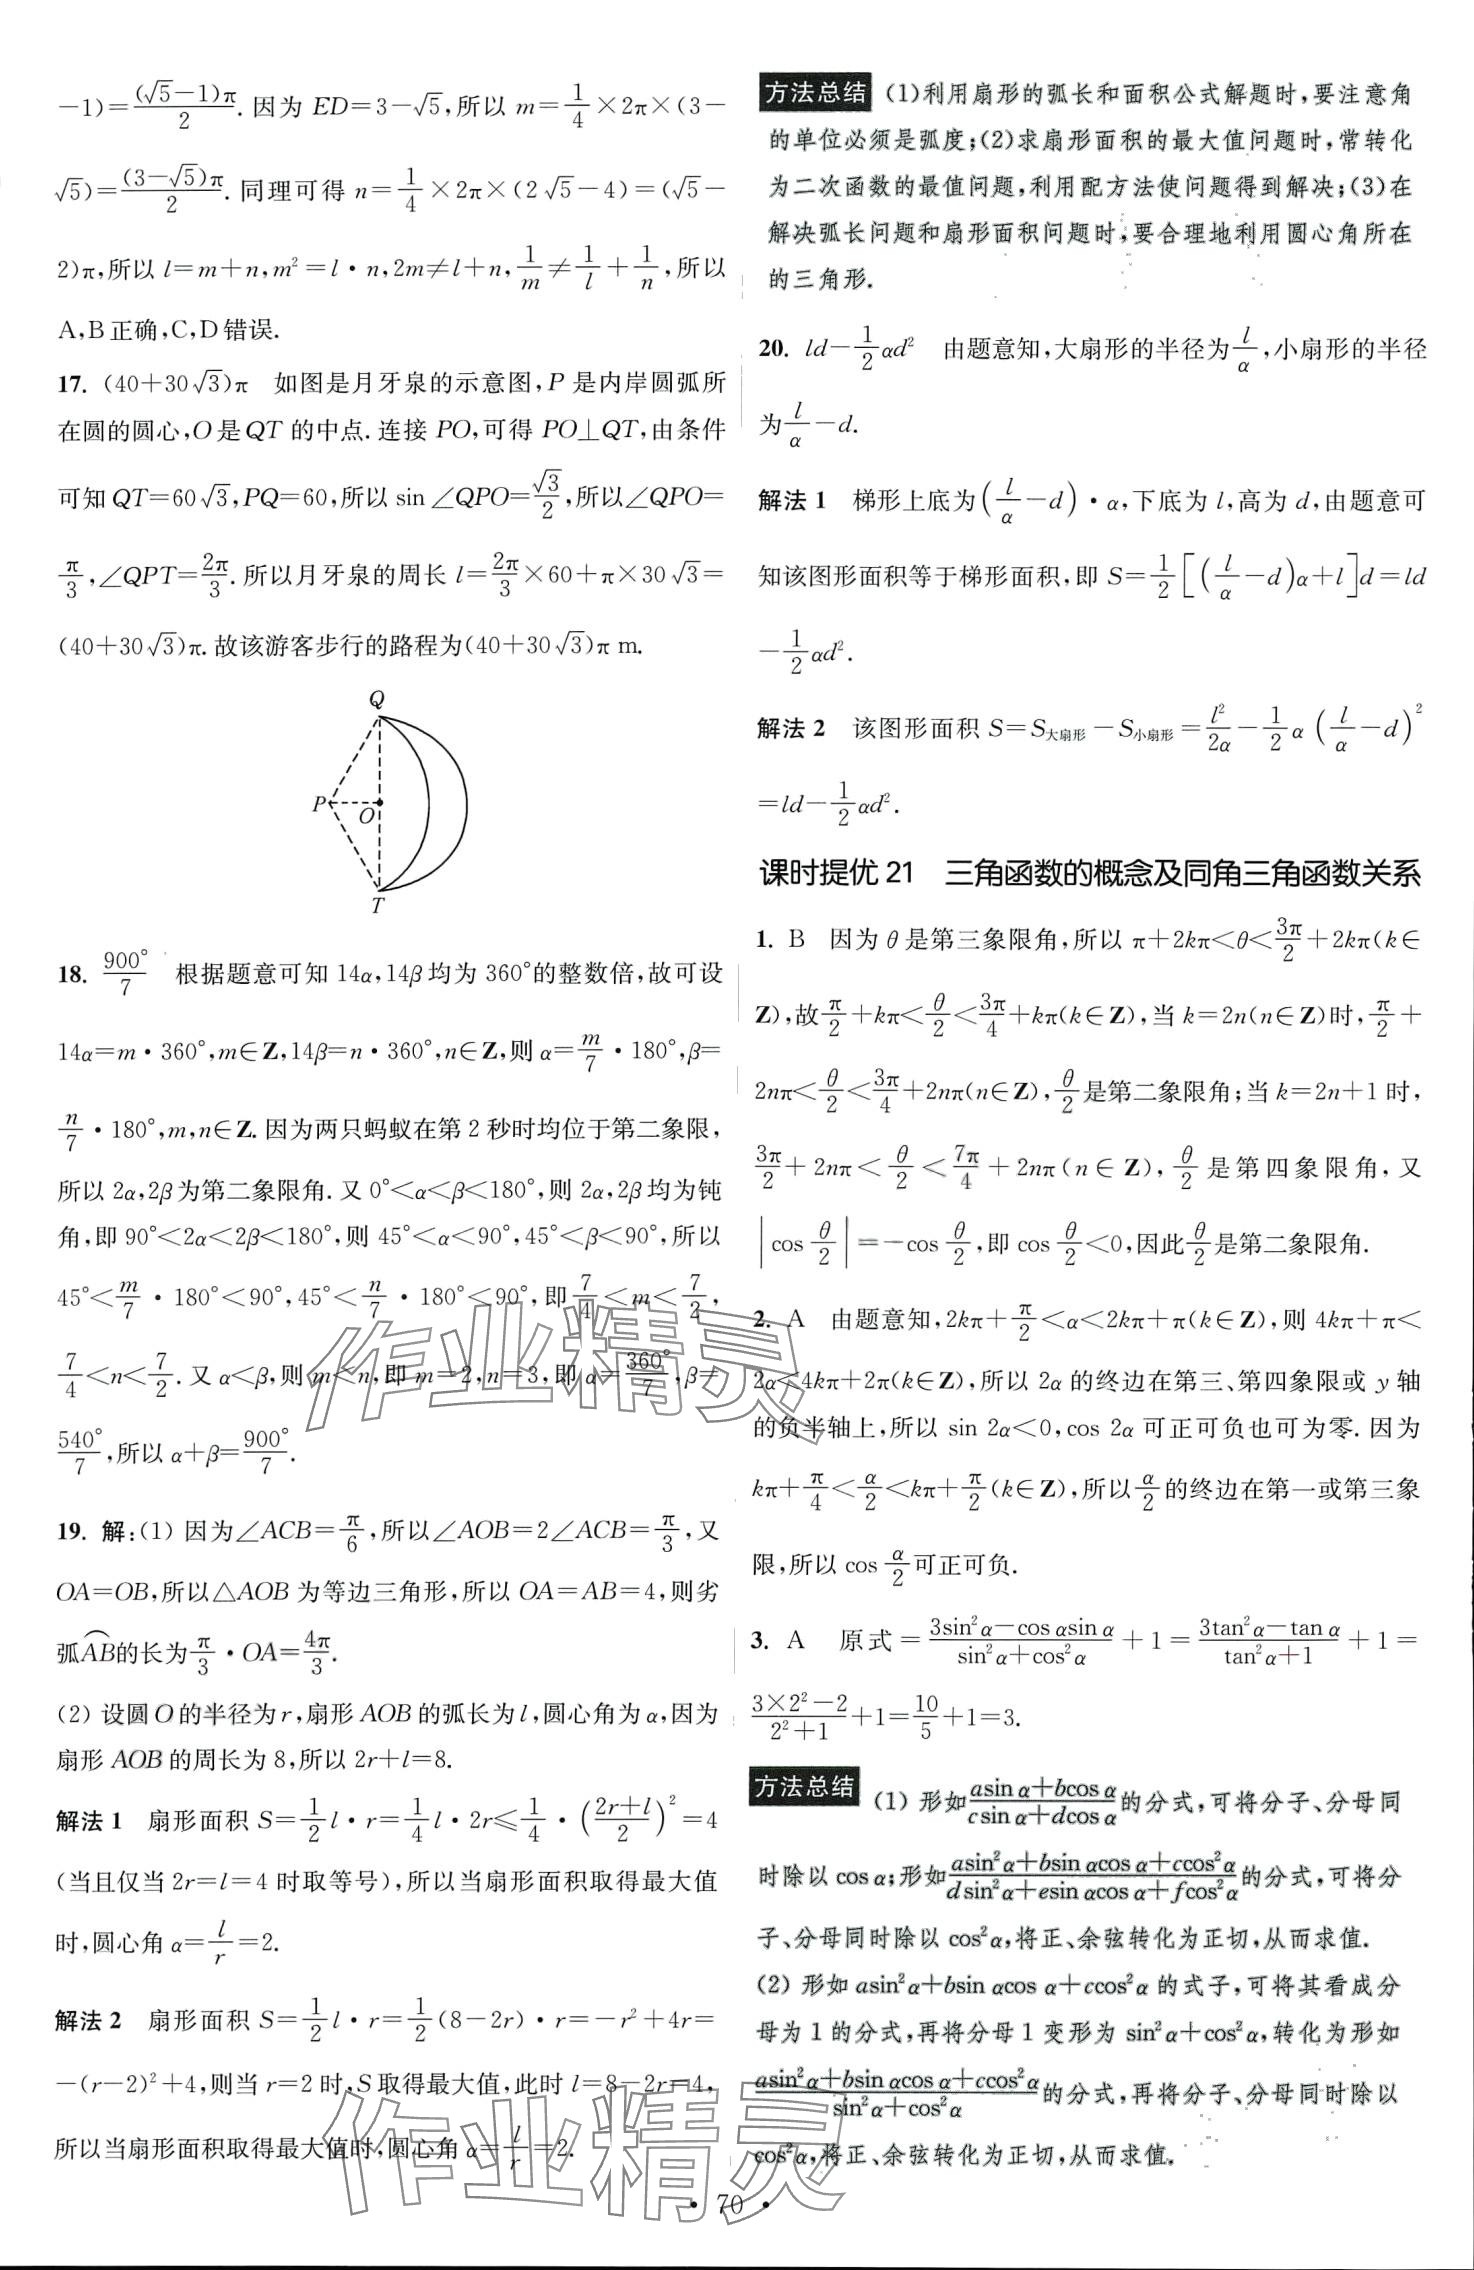 -1)=(√5-1)π/2. 因为 ED=3-√5,所以 m=1/4×2π×(3-
√5)=(3-√5)π/2. 同理可得 n=1/4×2π×(2√5-4)=(√5-
2)π,所以 l=m+n,m²=l·n,2m≠l+n,1/m≠1/l+1/n,所以
A,B正确,C,D错误.
17. (40+30√3)π 如图是月牙泉的示意图,P 是内岸圆弧所
在圆的圆心,O是QT 的中点.连接 PO,可得 PO⊥QT,由条件
可知QT=60√3,PQ=60,所以 sin∠QPO=√3/2,所以∠QPO=
π/3,∠QPT=2π/3.所以月牙泉的周长 l=2π/3×60+π×30√3=
(40+30√3)π.故该游客步行的路程为(40+30√3)π m.
Q
P
O
T
18. 900°/7 根据题意可知 14α,14β均为 360°的整数倍,故可设
14α=m·360°,m∈Z,14β=n·360°,n∈Z,则α=m/7·180°,β=
n/7·180°,m,n∈Z.因为两只蚂蚁在第2秒时均位于第二象限,
所以2α,2β为第二象限角.又0°<α<β<180°,则2α,2β均为钝
角,即 90°<2α<2β<180°,则 45°<α<90°,45°<β<90°,所以
45°<m/7·180°<90°,45°<n/7·180°<90°,即7/4<m<7/2,
7/4<n<7/2.又α<β,则m<n,即m=2,n=3,即α=360°/7,β=
540°/7,所以α+β=900°/7.
19. 解:(1) 因为∠ACB=π/6,所以∠AOB=2∠ACB=π/3,又
OA=OB,所以△AOB 为等边三角形,所以 OA=AB=4,则劣
弧AB的长为π/3·OA=4π/3.
(2) 设圆O的半径为r,扇形AOB的弧长为l,圆心角为α,因为
扇形AOB的周长为8,所以2r+l=8.
解法1 扇形面积 S=1/2 l·r=1/4 l·2r≤1/4·((2r+l)/2)²=4
(当且仅当2r=l=4 时取等号),所以当扇形面积取得最大值
时,圆心角α=l/r=2.
解法2 扇形面积 S=1/2 l·r=1/2(8-2r)·r=-r²+4r=
-(r-2)²+4,则当r=2时,S取得最大值,此时l=8-2r=4,
所以当扇形面积取得最大值时,圆心角α=l/r=2.
方法总结 (1)利用扇形的弧长和面积公式解题时,要注意角
的单位必须是弧度;(2)求扇形面积的最大值问题时,常转化
为二次函数的最值问题,利用配方法使问题得到解决;(3)在
解决弧长问题和扇形面积问题时,要合理地利用圆心角所在
的三角形.
20. ld-1/2αd² 由题意知,大扇形的半径为l/α,小扇形的半径
为l/α-d.
解法1 梯形上底为(l/α-d)·α,下底为l,高为d,由题意可
知该图形面积等于梯形面积,即 S=1/2[(l/α-d)α+l]d=ld
-1/2αd².
解法2 该图形面积 S=S大扇形-S小扇形=l²/2α-1/2α(l/α-d)²
=ld-1/2αd².
课时提优21 三角函数的概念及同角三角函数关系
1. B 因为θ是第三象限角,所以 π+2kπ<θ<3π/2+2kπ(k∈
Z),故π/2+kπ<θ/2<3π/4+kπ(k∈Z),当 k=2n(n∈Z)时,π/2+
2nπ<θ/2<3π/4+2nπ(n∈Z),θ/2是第二象限角;当k=2n+1时,
3π/2+2nπ<θ/2<7π/4+2nπ(n∈Z),θ/2是第四象限角,又
|cos θ/2|=-cos θ/2,即 cos θ/2<0,因此θ/2是第二象限角.
2. A 由题意知,2kπ+π/2<α<2kπ+π(k∈Z),则 4kπ+π<
2α<4kπ+2π(k∈Z),所以2α的终边在第三、第四象限或 y 轴
的负半轴上,所以 sin 2α<0,cos 2α可正可负也可为零.因为
kπ+π/4<α/2<kπ+π/2(k∈Z),所以α/2的终边在第一或第三象
限,所以 cos α/2可正可负.
3. A 原式=(3sin²α-cos αsin α)/(sin²α+cos²α)+1=(3tan²α-tan α)/(tan²α+1)+1=
(3×2²-2)/(2²+1)+1=10/5+1=3.
方法总结 (1) 形如(asin α+bcos α)/(csin α+dcos α)的分式,可将分子、分母同
时除以cos α;形如(asin²α+bsin αcos α+ccos²α)/(dsin²α+esin αcos α+fcos²α)的分式,可将分
子、分母同时除以 cos²α,将正、余弦转化为正切,从而求值.
(2) 形如 asin²α+bsin αcos α+ccos²α 的式子,可将其看成分
母为1的分式,再将分母1变形为 sin²α+cos²α,转化为形如
(asin²α+bsin αcos α+ccos²α)/(sin²α+cos²α)的分式,再将分子、分母同时除以
cos²α,将正、余弦转化为正切,从而求值.
·70·
作业精灵
作业精灵